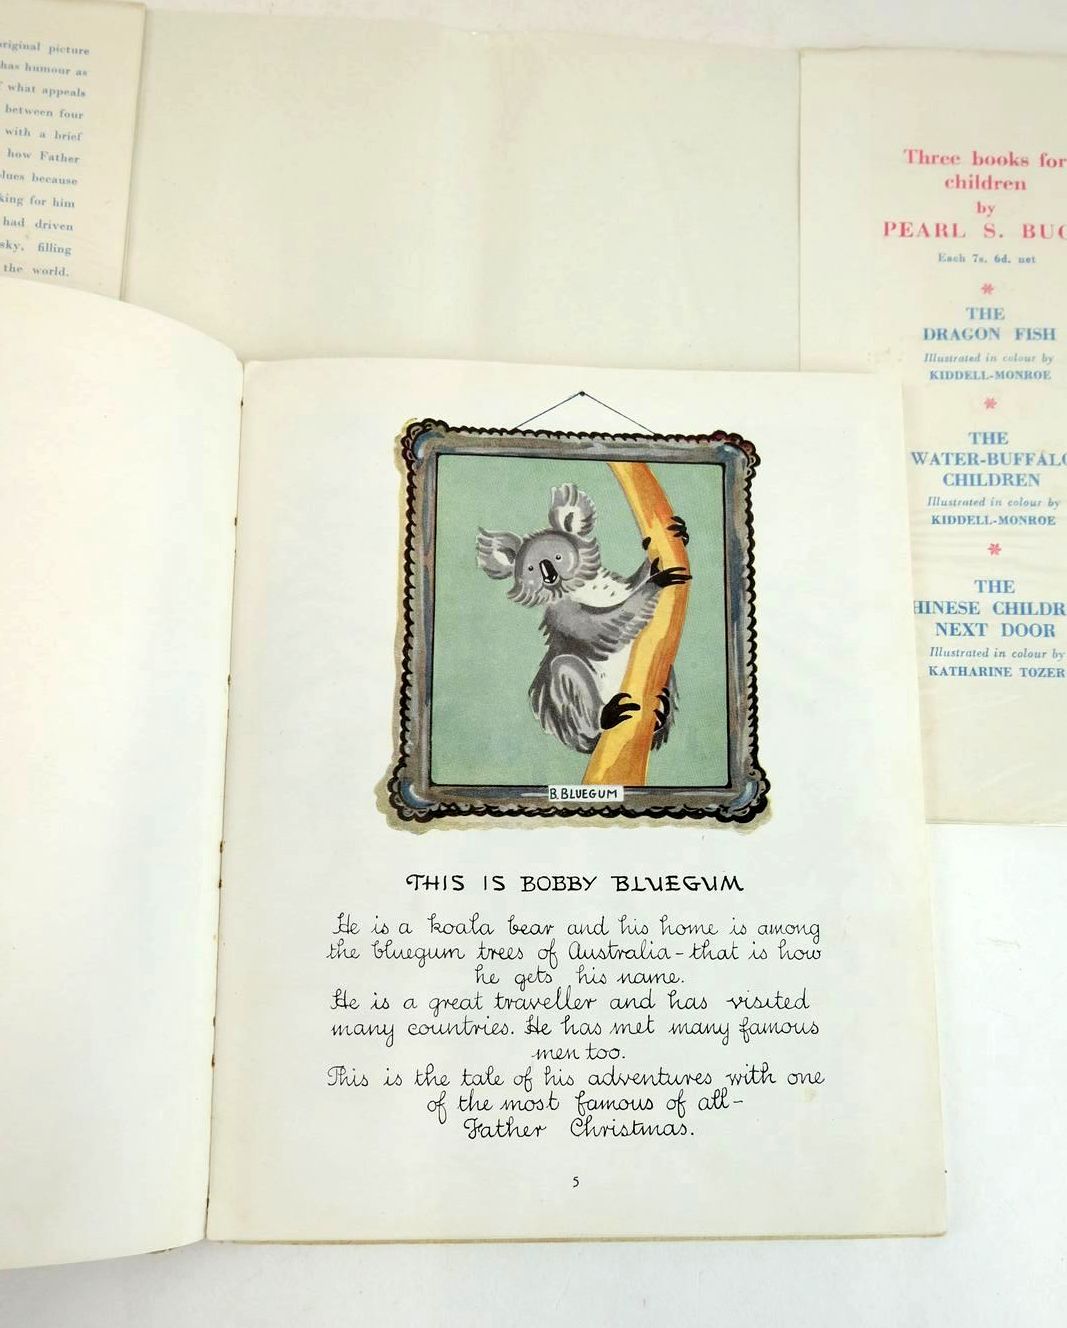 riginal picture
has humour as
what appeals
between four
with a brief
how Father
lues because
king for him
had driven
sky, filling
the world.
Three books for
children
by
PEARL S. BUC
Each 7s. 6d. net
THE
DRAGON FISH
Illustrated in colour by
KIDDELL-MONROE
THE
WATER-BUFFALO
CHILDREN
Illustrated in colour by
KIDDELL-MONROE
THE
HINESE CHILDR
NEXT DOOR
Illustrated in colour by
KATHARINE TOZER
B. BLUEGUM
THIS IS BOBBY BLUEGUM
He is a koala bear and his home is among
the bluegum trees of Australia - that is how
he gets his name.
He is a great traveller and has visited
many countries. He has met many famous
men too.
This is the tale of his adventures with one
of the most famous of all -
Father Christmas.
5